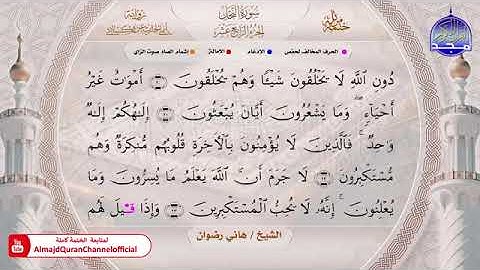 سورة النحل
الجزء الرابع عشر
الحرف المخالف لحفص الادغام الامالة إشمام الصاد صوت الزاي
دُونِ اللَّهِ لَا يَخْلُقُونَ شَيْـًٔا وَهُمْ يُخْلَقُونَ ٢٠ أَمْوَٰتٌ غَيْرُ
أَحْيَآءٍ ۖ وَمَا يَشْعُرُونَ أَيَّانَ يُبْعَثُونَ ٢١ إِلَٰهُكُمْ إِلَٰهٌ
وَٰحِدٌ ۚ فَالَّذِينَ لَا يُؤْمِنُونَ بِالْأَخِرَةِ قُلُوبُهُم مُّنكِرَةٌ وَهُم
مُّسْتَكْبِرُونَ ٢٢ لَا جَرَمَ أَنَّ اللَّهَ يَعْلَمُ مَا يُسِرُّونَ وَمَا
يُعْلِنُونَ ۚ إِنَّهُۥ لَا يُحِبُّ الْمُسْتَكْبِرِينَ ٢٣ وَإِذَا قِيلَ لَهُم
الشيخ / هاني رضوان
لمتابعة الختمة كاملة
AlmajdQuranChannelofficial
You Tube